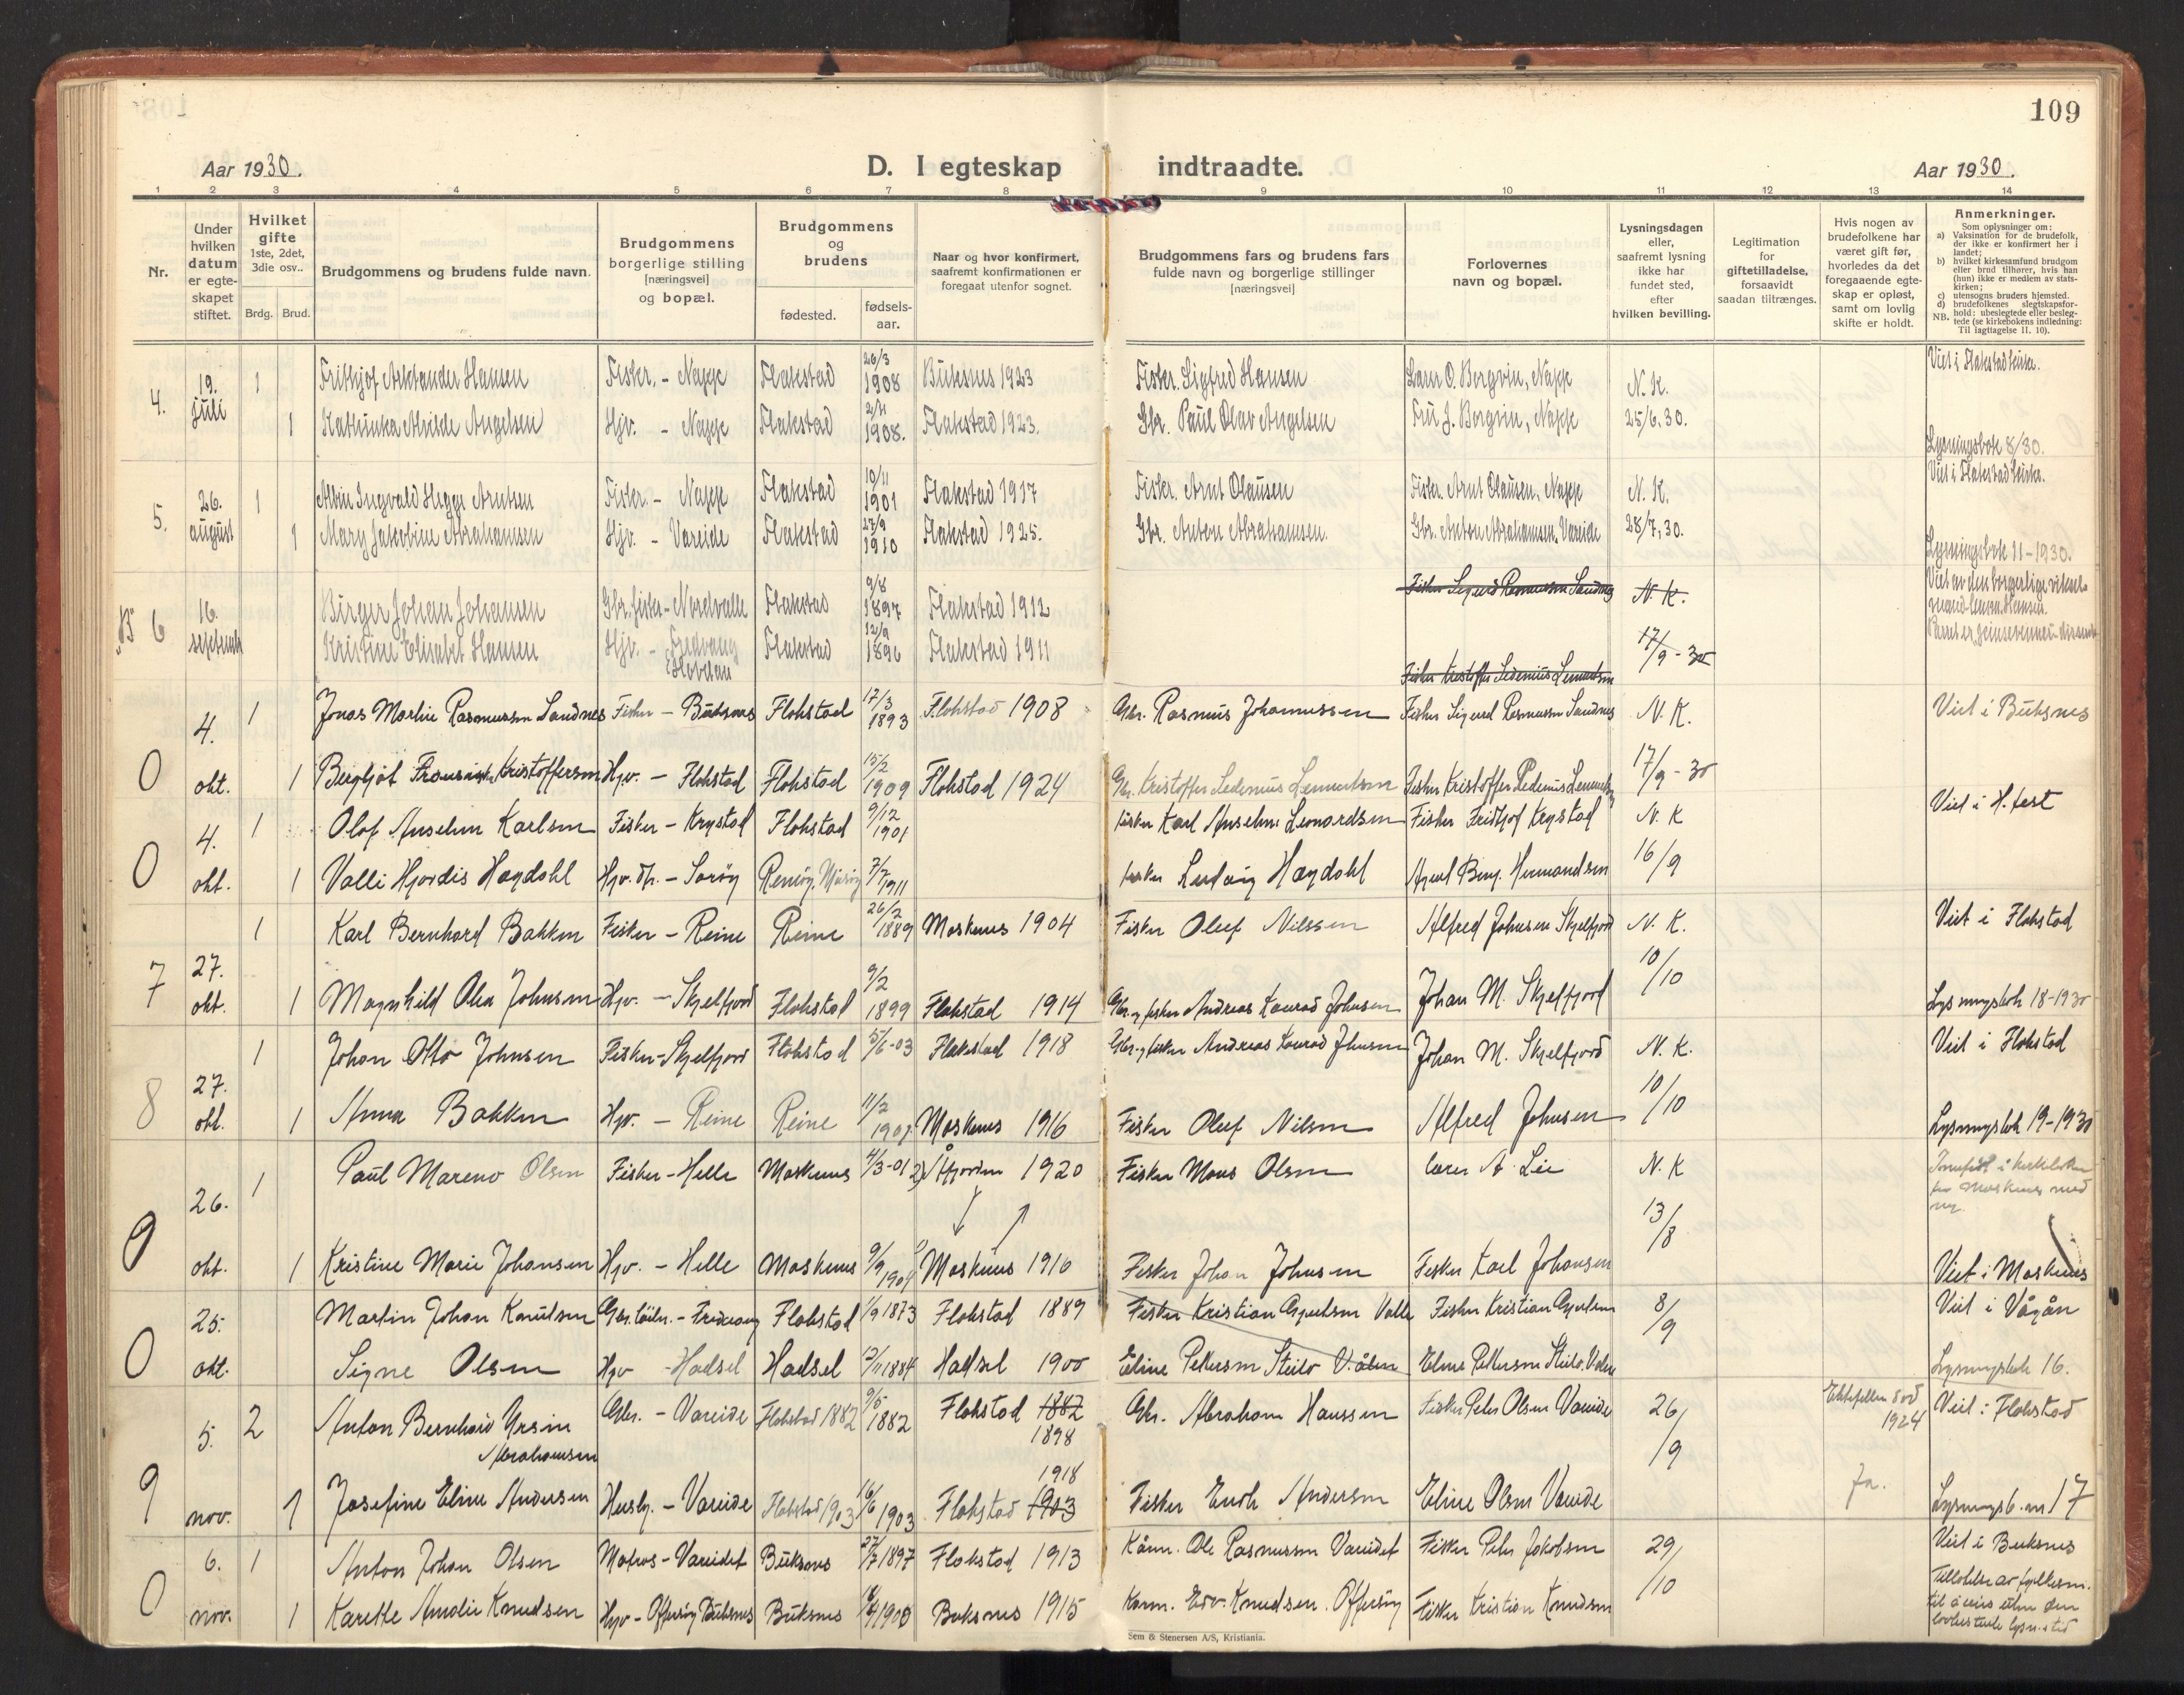 109
Aar 1930.
D. I egteskap indtraadte.
Aar 1930.
1 2 3 4 5 6 7 8 9 10 11 12 13 14
Nr.
Under hvilken datum er egteskapet stiftet.
Hvilket gifte 1ste, 2det, 3die osv..
Brdg. Brud.
Brudgommens og brudens fulde navn.
Brudgommens borgerlige stilling [næringsvei] og bopæl.
Brudgommens og brudens
fødested.
fødsels-aar.
Naar og hvor konfirmert, saafremt konfirmationen er foregaat utenfor sognet.
Brudgommens fars og brudens fars fulde navn og borgerlige stillinger [næringsvei]
Forlovernes navn og bopæl.
Lysningsdagen eller, saafremt lysning ikke har fundet sted, efter hvilken bevilling.
Legitimation for giftetilladelse, forsaavidt saadan tiltrænges.
Hvis nogen av brudefolkene har været gift før, hvorledes da det foregaaende egteskap er opløst, samt om lovlig skifte er holdt.
Anmerkninger.
Som oplysninger om:
a) Vaksination for de brudefolk, der ikke er konfirmert her i landet;
b) hvilket kirkesamfund brudgom eller brud tilhører, hvis han (hun) ikke er medlem av statskirken;
c) utensogns bruders hjemsted.
d) brudefolkenes slegtskapsforhold: ubeslegtede eller beslegtede (se kirkebokens indledning:
NB. Til iagttagelse II. 10).
4. 19. juli 1 Frithjof Arktander Hansen Fisker. - Napp Flakstad 26/3 1908 Buksnes 1923 Fisker. Sigfred Hansen O. Bergvin, Napp N. K. Viet i Flakstad kirke.
1 Kathinka Alvilde Angelsen Hjv. - Napp Flakstad 2/11 1908. Flakstad 1923. Gbr. Paul Olav Angelsen Fru J. Bergvin, Napp 25/6.30. Lysningsbok 8/30.
5. 26. august 1 Albin Ingvald Hegge Arntsen Fisker. - Napp Flakstad 10/11 1901 Flakstad 1917 Fisker. Arnt Olausen Fisker Arnt Olausen, Napp N. K. Viet i Flakstad kirke.
1 Mary Jakobine Abrahamsen Hjv. - Vareide Flakstad 27/9 1910 Flakstad 1925. Gbr. Anton Abrahamsen. Gbr. Anton Abrahamsen. Vareide 28/7.30. Lysningsbok 11-1930.
"B" 6 16. september Birger Johan Johansen Gbr. fisker - Nordvalle Flakstad 9/8 1897 Flakstad 1912 Fisker Sigurd Rasmussen Sandnes N. K. Viet av den borgerlige
Kristine Elisabet Hansen Hjv. - Fredvang 12/9 1896 Flakstad Flakstad 1911 Fisker Kristoffer Sedenius Lennertsen 17/9-30
0 4. okt. 1 Jonas Martin Rasmussen Sandnes Fisker - Buksnes Flakstad 17/3 1893 Flakstad 1908 Gbr. Rasmus Johannessen Fisker Sigurd Rasmussen Sandnes N. K. Viet i Buksnes
1 Bergljot Kristoffersen Hjv. - Flakstad Flakstad 15/2 1909 Flakstad 1924 Gbr. Kristoffer Sedenius Lennertsen Fisker Kristoffer Sedenius Lennertsen 17/9-30
0 4. okt. 1 Olaf Anselm Karlsen Fisker - Krystad Flakstad 9/12 1901 fisker Karl Anselm Leonardsen Fisker Fridtjof Krystad N. K Viet i H.fest
1 Valli Hjordis Hagdahl Hjv. - Sørøy 7/7 1911 fisker Ludvig Hagdahl Hermandsen 16/9
7 27. okt. 1 Karl Bernhard Bakken Fisker - Reine Reine 26/2 1889 Moskenes 1904 Fisker Oluf Nilssen Alfred Johnsen Skjelfjord N. K. Viet i Flakstad
1 Magnhild Olea Johnsen Hjv. - Skjelfjord Flakstad 9/2 1899 Flakstad 1914 Gbr. og fisker Andreas Konrad Johnsen Johan M. Skjelfjord 10/10 Lysningsbok 18-1930
8 27. okt. 1 Johan Otto Johnsen Fisker - Skjelfjord Flakstad 5/6-03 Flakstad 1918 Gbr. og fisker Andreas Konrad Johnsen Johan M. Skjelfjord N. K. Viet i Flakstad
1 Anna Bakken Hjv. - Reine Reine 11/2 1902 Moskenes 1916 Fisker Oluf Nilsen Alfred Johnsen 10/10 Lysningsbok 19-1930
9 26. okt. 1 Paul Mareno Olsen Fisker - Helle Moskenes 4/3-01 Åfjorden 1920 Fisker Mons Olsen lærer A. Lie N. K Innført i kirkeboken for Moskenes med nr.
1 Kristine Marie Johansen Hjv. - Helle Moskenes 9/9 1904 Moskenes 1910 Fisker Johan Johnsen Fisker Karl Johansen 13/8 Viet i Moskenes
0 25. okt. Martin Johan Knudsen - Fredvang Flakstad 1/9 1873 Flakstad 1889 Fisker Kristian Gjertsen Valle Fisker Kristian Gjertsen 8/9 Viet i Vågån
Signe Olsen Hjv - Hadsel Hadsel 7/11 1884 Hadsel 1900 Eline Pettersen Steilo Eline Pettersen Steilo. Lysningsbok 16.
9 5. nov. 2 Anton Bernhard Ursin Abrahamsen Gbr. - Vareide Flakstad 1882 9/5 1882 Flakstad 1882 1898 Gbr. Abraham Hanssen Fisker Peter Olsen Vareide 26/9 Ektefellen død 1924 Viet i Flakstad
1 Josefine Eline Andersen Husb. - Vareide Flakstad 1903 16/6 1903 Flakstad 1903 1918 Fisker Enok Andersen Eline Olsen Vareide Ja. Lysningsb. nr 17
0 6. nov. 1 Anton Johan Olsen Matros - Vareidet Buksnes 27/7 1897 Flakstad 1913 Kårm. Ole Rasmussen Vareidet Fisker Peter Jakobsen 29/10 Viet i Buksnes
1 Karette Amalie Knudsen Hjv - Offersøy Buksnes Buksnes 1900 Buksnes 1915 Karm. Edv. Knudsen. Offersøy Fisker Kristian Knudsen Tillatelse av fylkesm. til å vies uten den
Sem & Stenersen A/S, Kristiania.